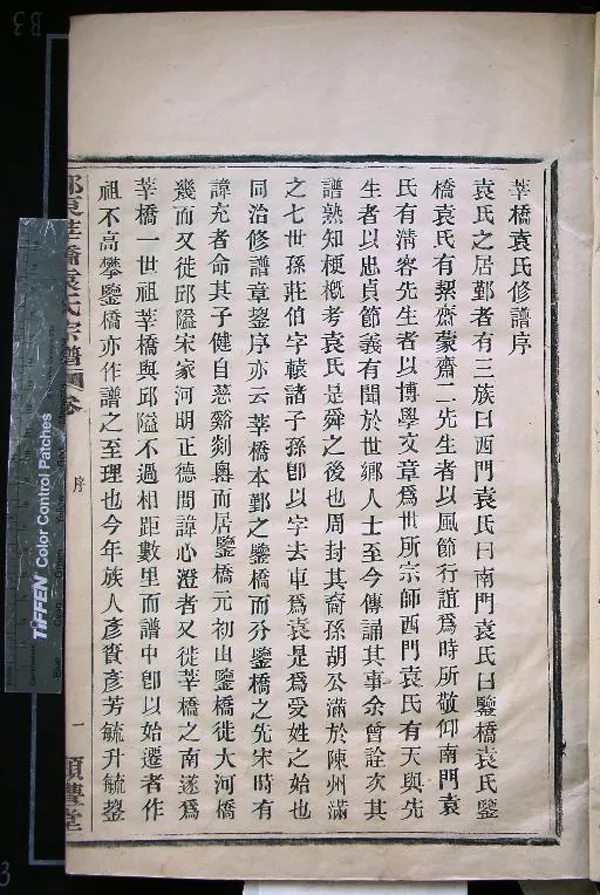 莘橋袁氏修譜序
袁氏之居鄞者有三族曰西門袁氏曰南門袁氏曰鑒橋袁氏鑒
橋袁氏有絜齋蒙齋二先生者以風節行誼爲時所敬仰南門袁
氏有淸容先生者以博學文章爲世所宗師西門袁氏有天與先
生者以忠貞節義有聞於世鄉人士至今傳誦其事余曾詮次其
譜熟知梗槪考袁氏是舜之後也周封其裔孫胡公滿於陳州滿
之七世孫莊伯字轅諸子孫卽以字去車爲袁是爲受姓之始也
同治修譜章鋆序亦云莘橋本鄞之鑒橋而分鑒橋之先宋時有
諱充者命其子健自慈谿剡㠗而居鑒橋元初由鑒橋徙大河橋
幾而又徙邱隘宋家河明正德間諱心澄者又徙莘橋之南遂爲
莘橋一世祖莘橋與邱隘不過相距數里而譜中卽以始遷者作
祖不高攀鑒橋亦作譜之至理也今年族人彥賓彥芳毓升毓鋆
橋袁氏宗譜
卷
序
一
豐堂
TIFFEN Color Control Patches
B3